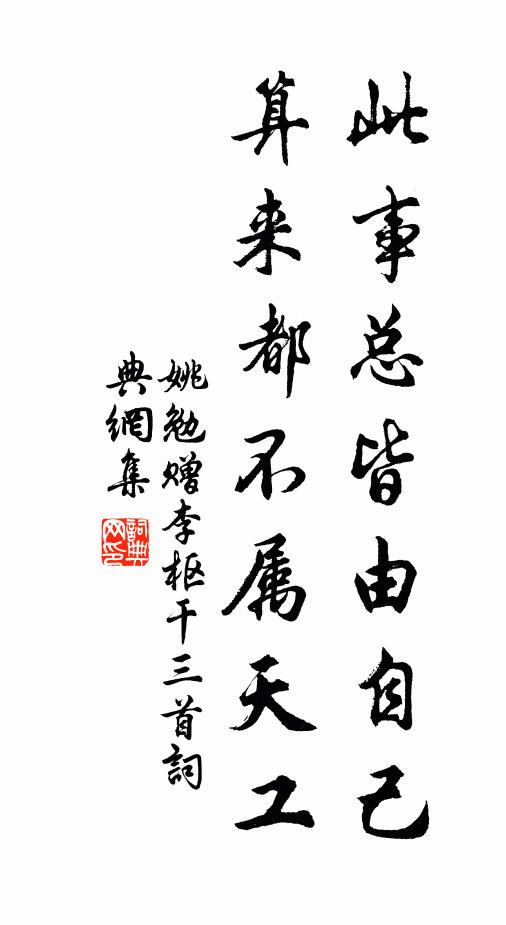 此事总皆由自己
算来都不属天工
姚勉赠李枢干三首詞
典網集
詞典网印